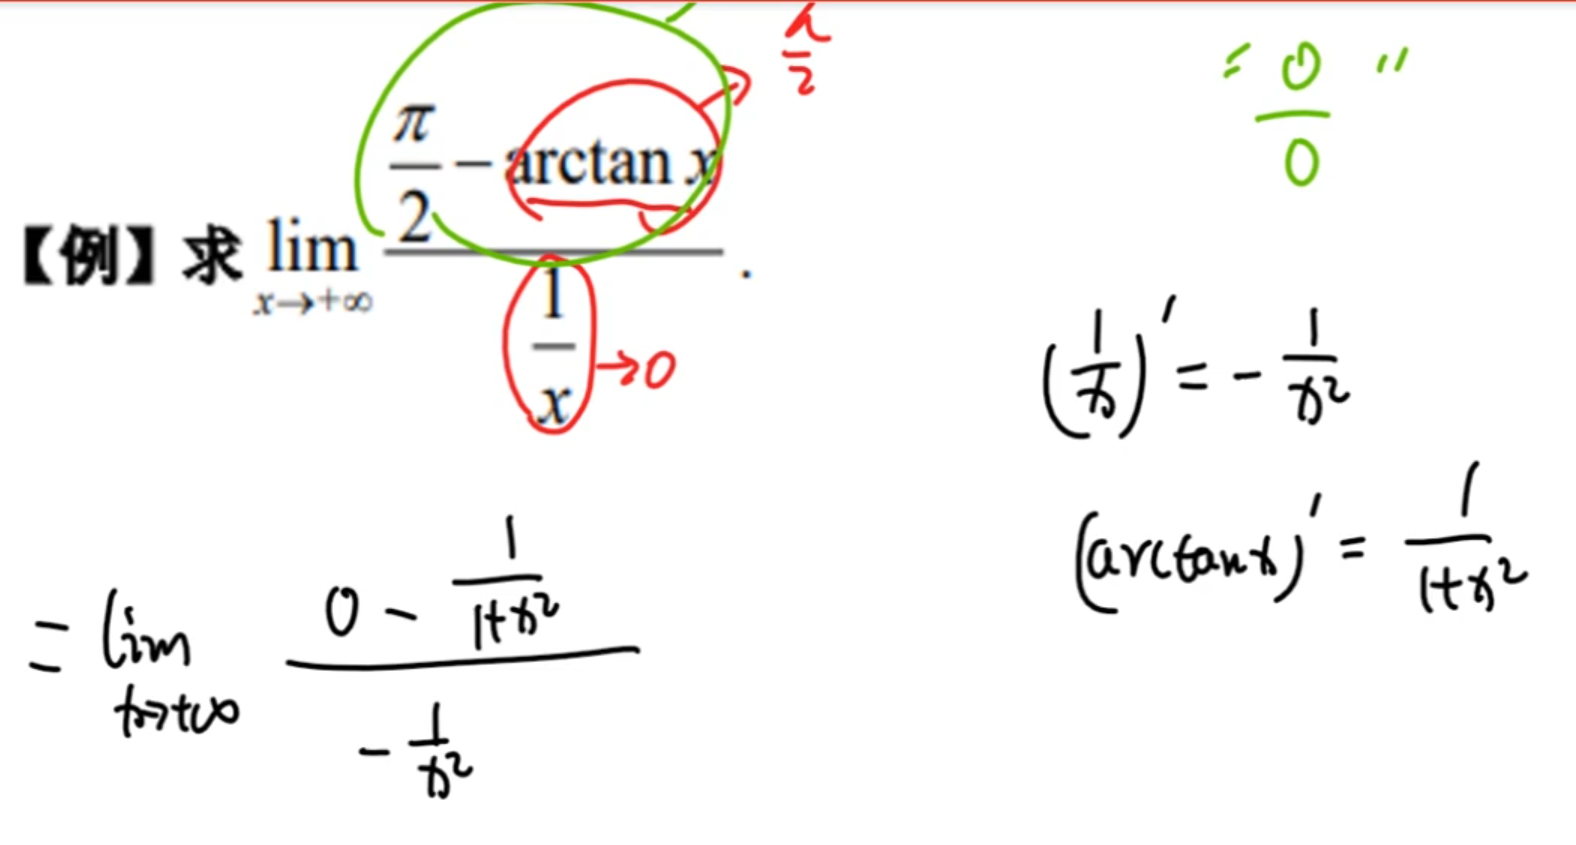 π/2
" 0/0 "
【例】求 lim x→+∞ (π/2 − arctan x)/(1/x) .
→0
(1/x)′ = − 1/x²
(arctanx)′ = 1/(1+x²)
= lim x→+∞ (0 − 1/(1+x²))/(− 1/x²)